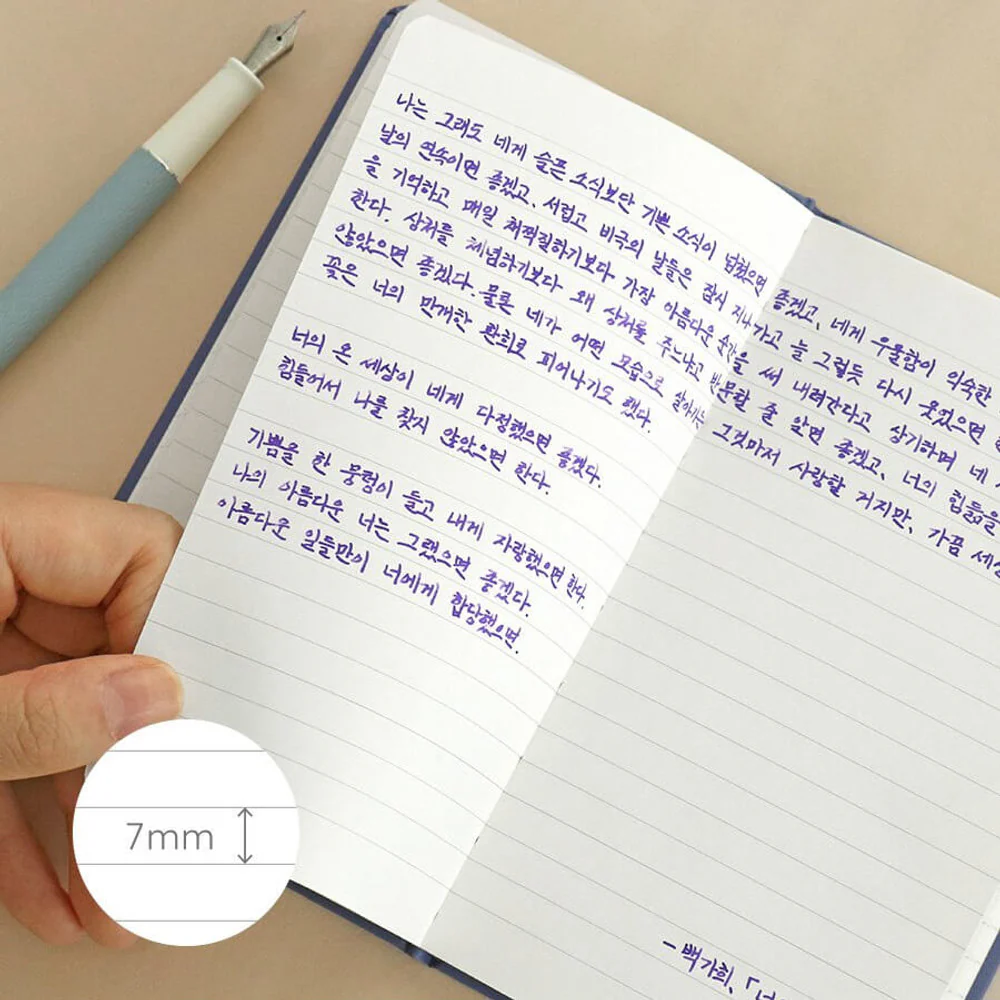 나는 그래도 네게 슬픈 소식보단 기쁜 소식이 덥혔으면 좋겠고, 네게 우울함이 익숙한
날의 연속이면 좋겠고, 서럽고 비극의 날들은 잠시 지나가고 늘 그렇듯 다시 웃었으면
을 기억하고 매일 채찍질하기보다 가장 아름다운 순간을 써 내려간다고 상기하며 네
한다. 상처를 체념하기보다 왜 상처를 주느냐고 반문할 줄 알면 좋겠고, 너의 힘듦을
않았으면 좋겠다. 물론 네가 어떤 모습으로 살아가든 그것마저 사랑할 거지만, 가끔
꽃은 너의 만개한 환희로 피어나기도 했다.
너의 온 세상이 네게 다정했으면 좋겠다.
힘들어서 나를 찾지 않았으면 한다.
기쁨을 한 뭉텅이 들고 내게 자랑했으면 한다.
나의 아름다운 너는 그랬으면 좋겠다.
아름다운 일들만이 너에게 합당했으면.
- 백가희, 「
7mm